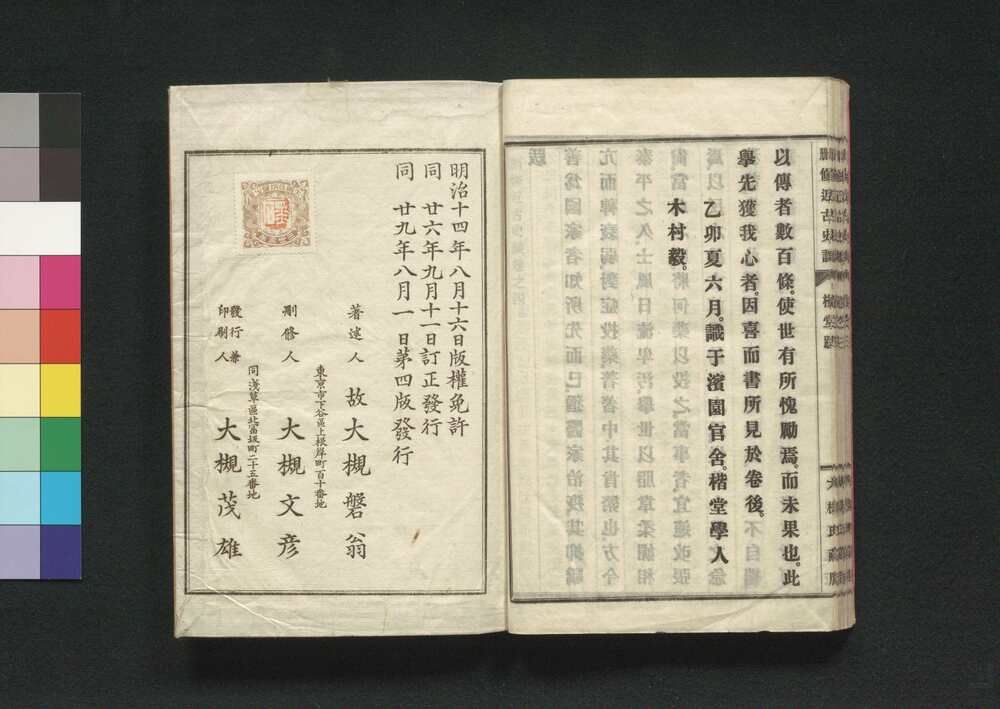 以傳者數百條。使世有所愧勵焉。而未果也。此
擧先獲我心者。因喜而書所見於卷後。
乙卯夏六月。識于濱園官舍。楷堂學人
木村毅。
刪修近古史談
楷堂跋
明治十四年八月十六日版權免許
同 廿六年九月十一日訂正發行
同 廿九年八月一日第四版發行
著述人 故 大槻磐翁
東京市下谷區上根岸町百十番地
刪修人 大槻文彦
同淺草區北富坂町二十五番地
發行兼
印刷人 大槻茂雄